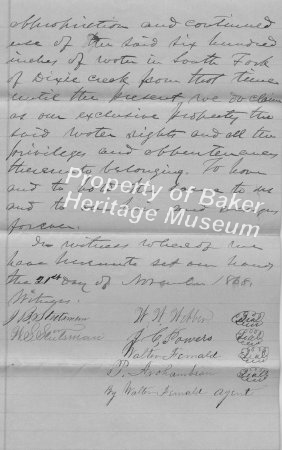 appropriation and continued
use of the said six hundred
inches of water in South Fork
of Dixie creek from that time
until the present we do claim
as our exclusive property the
said water rights and all the
privileges and appurtenances
thereunto belonging. To have
and to
to us
and to
forever.
Property of Baker
Heritage Museum
In witness whereof we
have hereunto set our hands
this 21st Day of November 1868.
Witness
W. W. Webber Seal
J. C. Powers Seal
Walter Fernald Seal
P. Archambeau Seal
By Walter Fernald agent